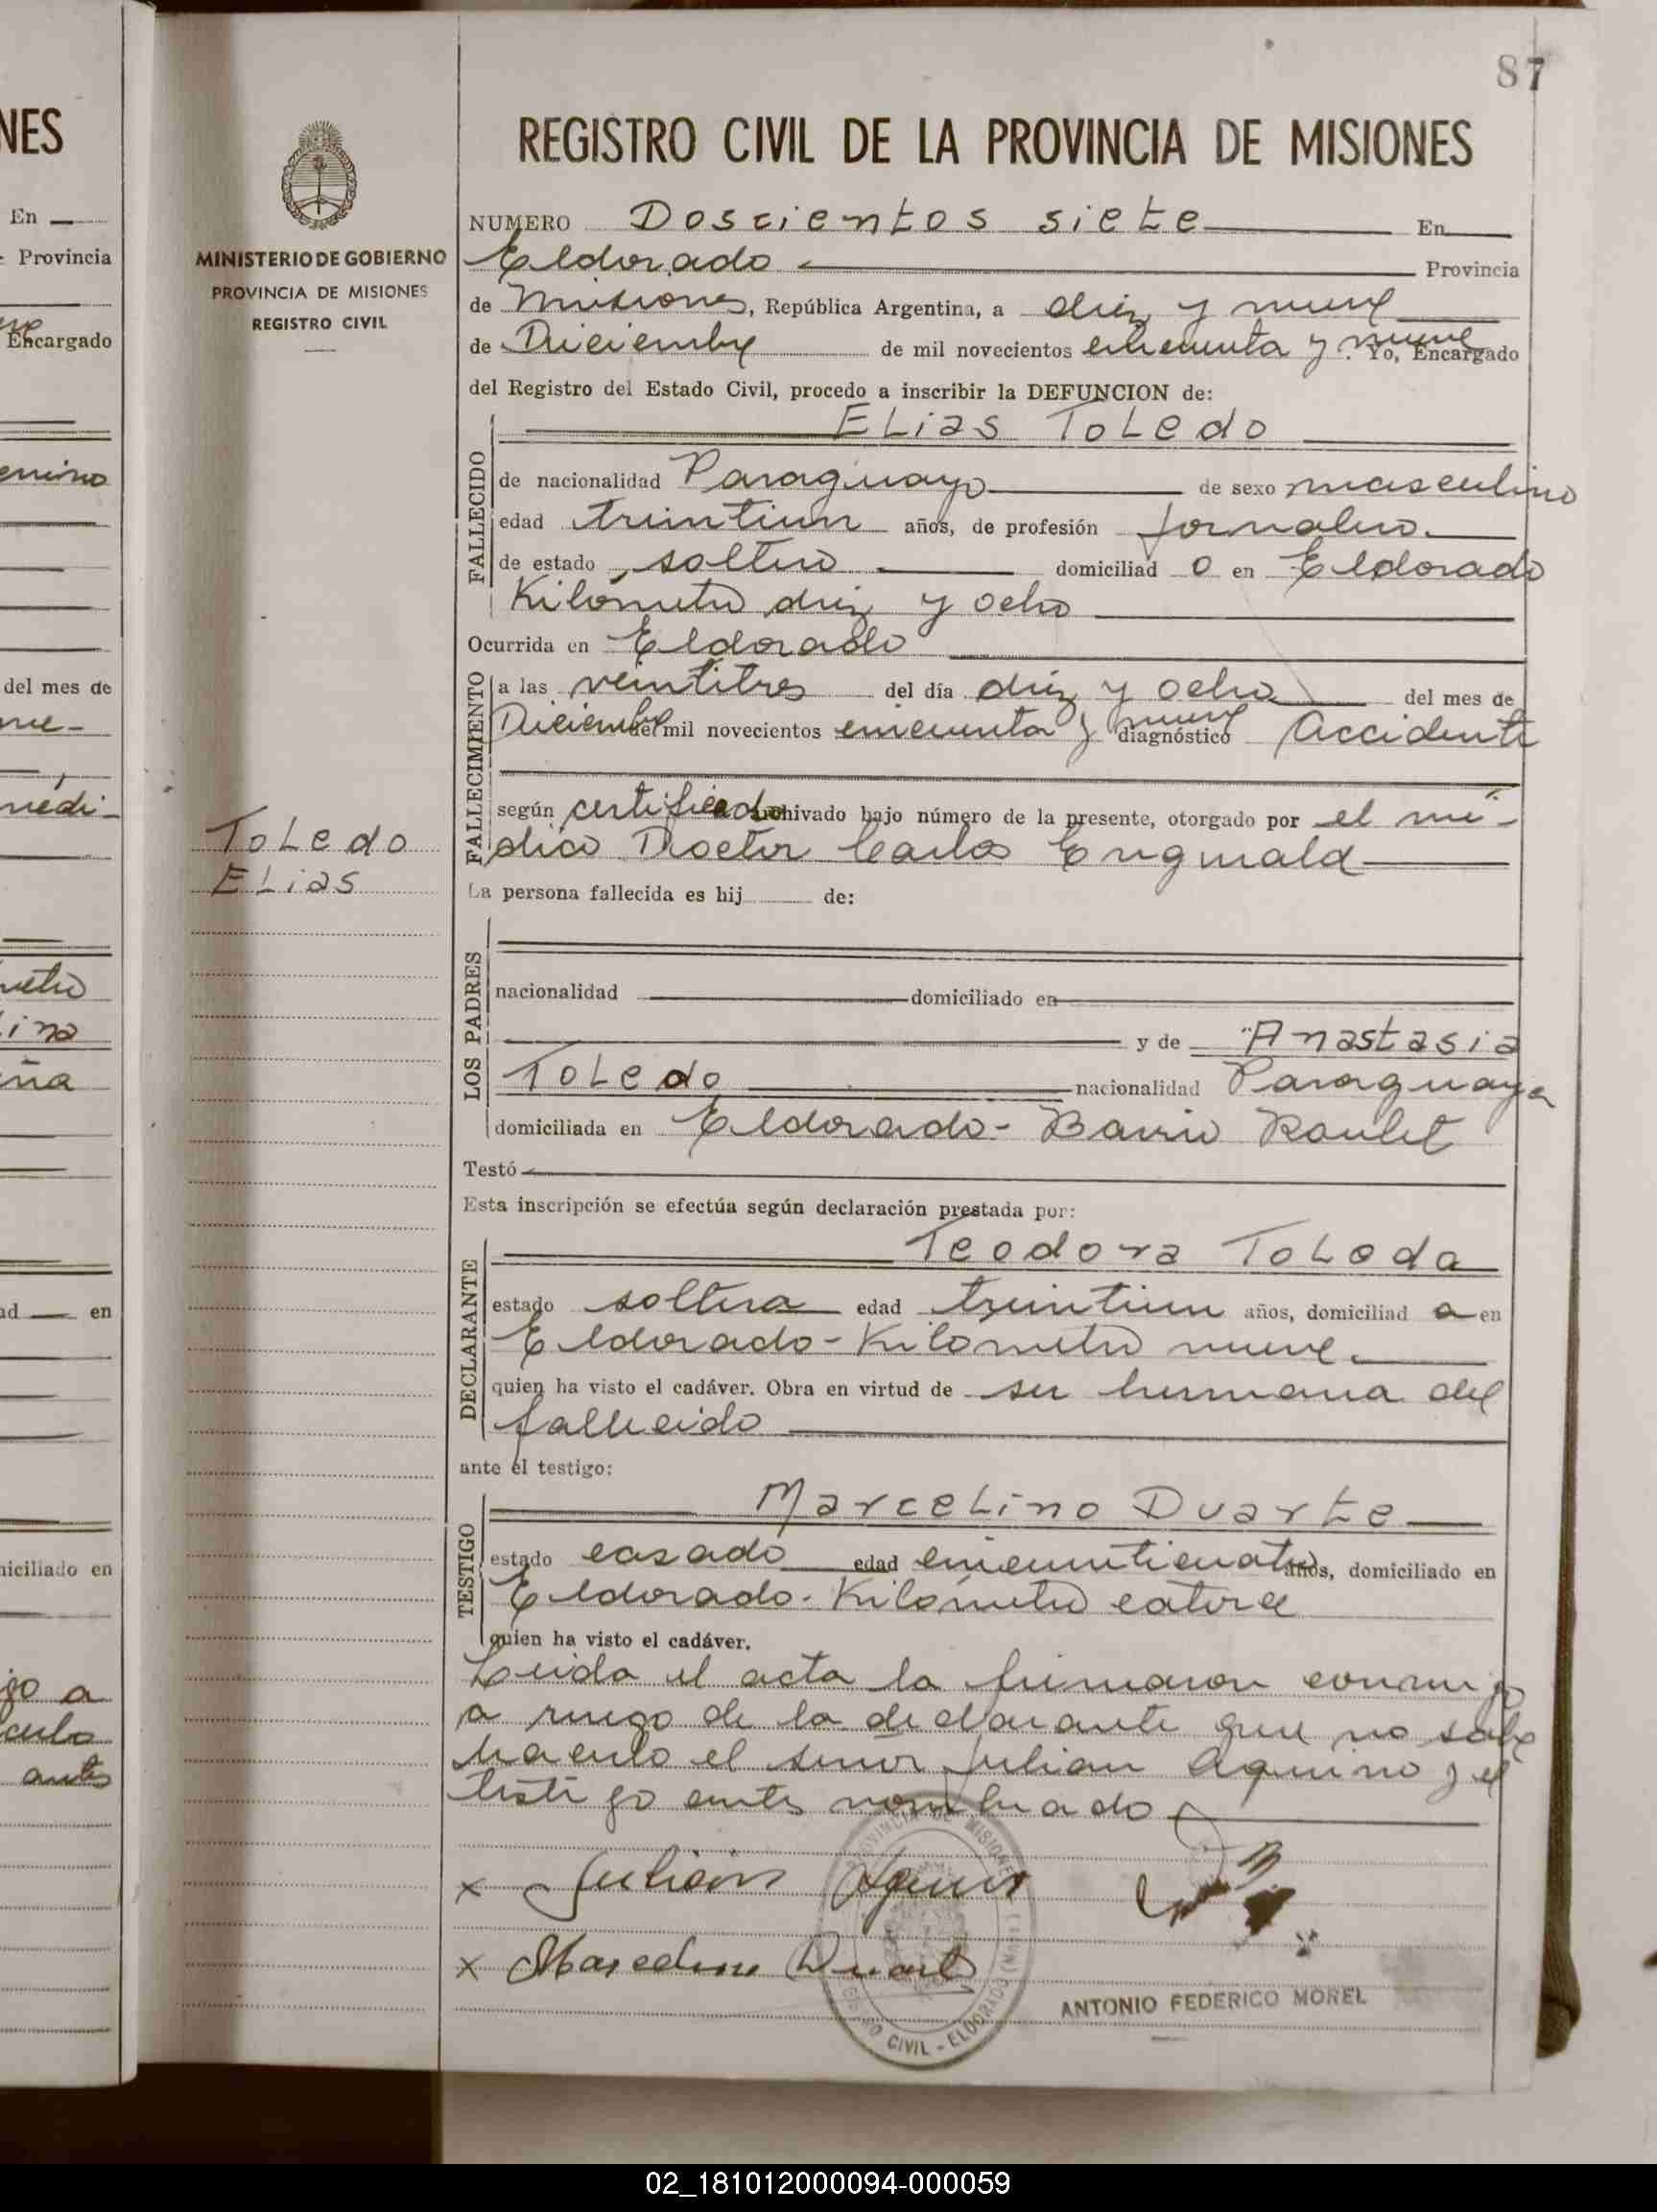 87
NES
En
Provincia
Encargado
del mes de
en
MINISTERIO DE GOBIERNO
PROVINCIA DE MISIONES
REGISTRO CIVIL
Toledo
Elias
REGISTRO CIVIL DE LA PROVINCIA DE MISIONES
NUMERO Doscientos siete En
Eldorado Provincia
de Misiones, República Argentina, a diez y nueve
de Diciembre de mil novecientos cincuenta y nueve. Yo, Encargado
del Registro del Estado Civil, procedo a inscribir la DEFUNCION de:
Elias Toledo
FALLECIDO
de nacionalidad Paraguayo de sexo masculino
edad treintiun años, de profesión jornalero.
de estado soltero domiciliado en Eldorado
Kilómetro diez y ocho
Ocurrida en Eldorado
FALLECIMIENTO
a las veintitres del día diez y ocho del mes de
Diciembre de mil novecientos cincuenta y nueve diagnóstico Accidente
según certificado archivado bajo número de la presente, otorgado por el mé-
dico Doctor Carlos
La persona fallecida es hij de:
LOS PADRES
nacionalidad domiciliado en
y de Anastasia
Toledo nacionalidad Paraguaya
domiciliada en Eldorado - Barrio Roulet
Testó
Esta inscripción se efectúa según declaración prestada por:
DECLARANTE
Teodora Toledo
estado soltera edad treintiun años, domiciliada en
Eldorado - Kilómetro nueve.
quien ha visto el cadáver. Obra en virtud de ser hermana del
fallecido
ante el testigo:
TESTIGO
Marcelino Duarte
estado casado edad cincuenticuatro años, domiciliado en
Eldorado - Kilómetro catorce
quien ha visto el cadáver.
Leida el acta la firmaron conmigo
a ruego de la declarante que no sabe
hacerlo el señor Julian Aquino y el
testigo antes nombrado
x Julian Aquino
x Marcelino Duarte
PROVINCIA DE MISIONES
REGISTRO CIVIL - ELDORADO
ANTONIO FEDERICO MOREL
02_181012000094-000059